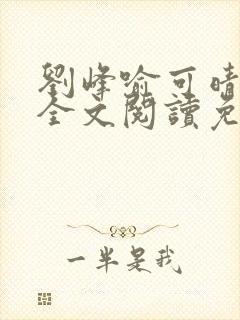 劉峰喻可晴
全文閱讀免
一半是我